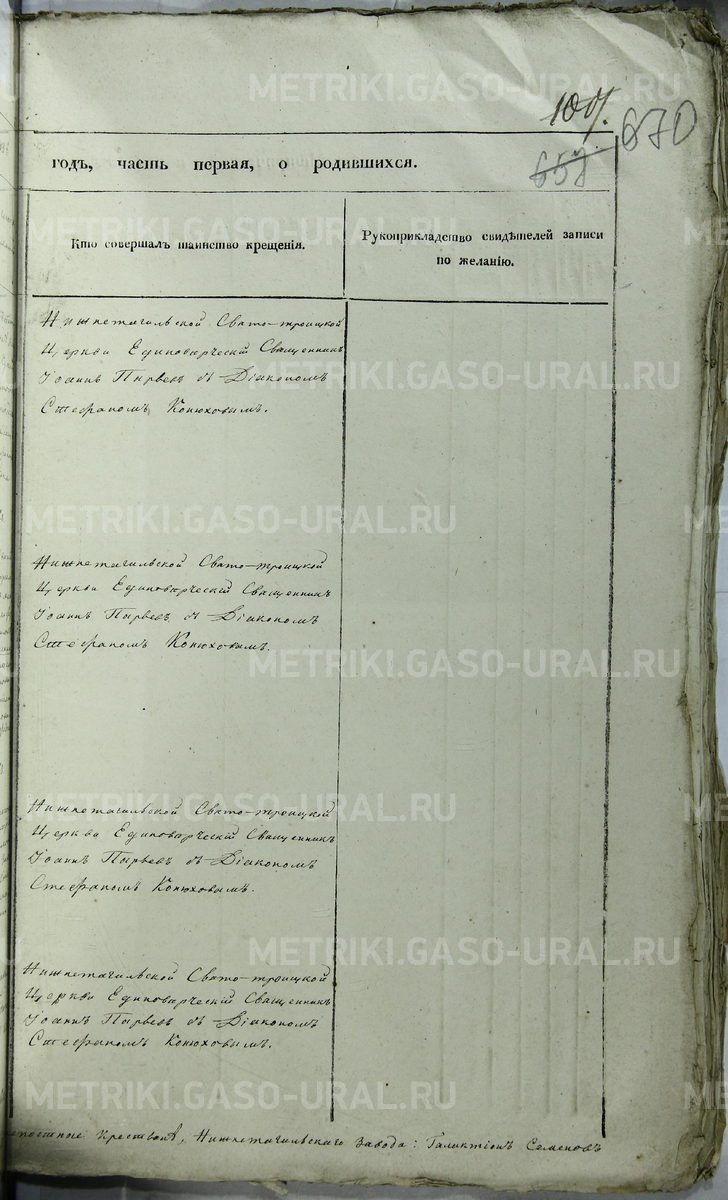 METRIKI.GASO-URAL.RU
658
670
годъ, часть первая, о родившихся.
Кто совершалъ таинство крещенія.
Рукоприкладство свидѣтелей записи
по желанію.
Нижнетагильской Свято-троицкой
Церкви Единоверческій Священникъ
Іоаннъ Пырьевъ съ Діакономъ
Стефаномъ Конюховымъ.
METRIKI.GASO-URAL.RU
METRIKI.GASO-URAL.RU
METRIKI.GASO-URAL.RU
Нижнетагильской Свято-троицкой
Церкви Единоверческій Священникъ
Іоаннъ Пырьевъ съ Діакономъ
Стефаномъ Конюховымъ.
METRIKI.GASO-URAL.RU
METRIKI.GASO-URAL.RU
Нижнетагильской Свято-троицкой
Церкви Единоверческій Священникъ
Іоаннъ Пырьевъ съ Діакономъ
Стефаномъ Конюховымъ.
METRIKI.GASO-URAL.RU
Нижнетагильской Свято-троицкой
Церкви Единоверческій Священникъ
Іоаннъ Пырьевъ съ Діакономъ
Стефаномъ Конюховымъ.
METRIKI.GASO-URAL.RU
Нижнетагильскаго Завода: Галактіонъ Семеновъ